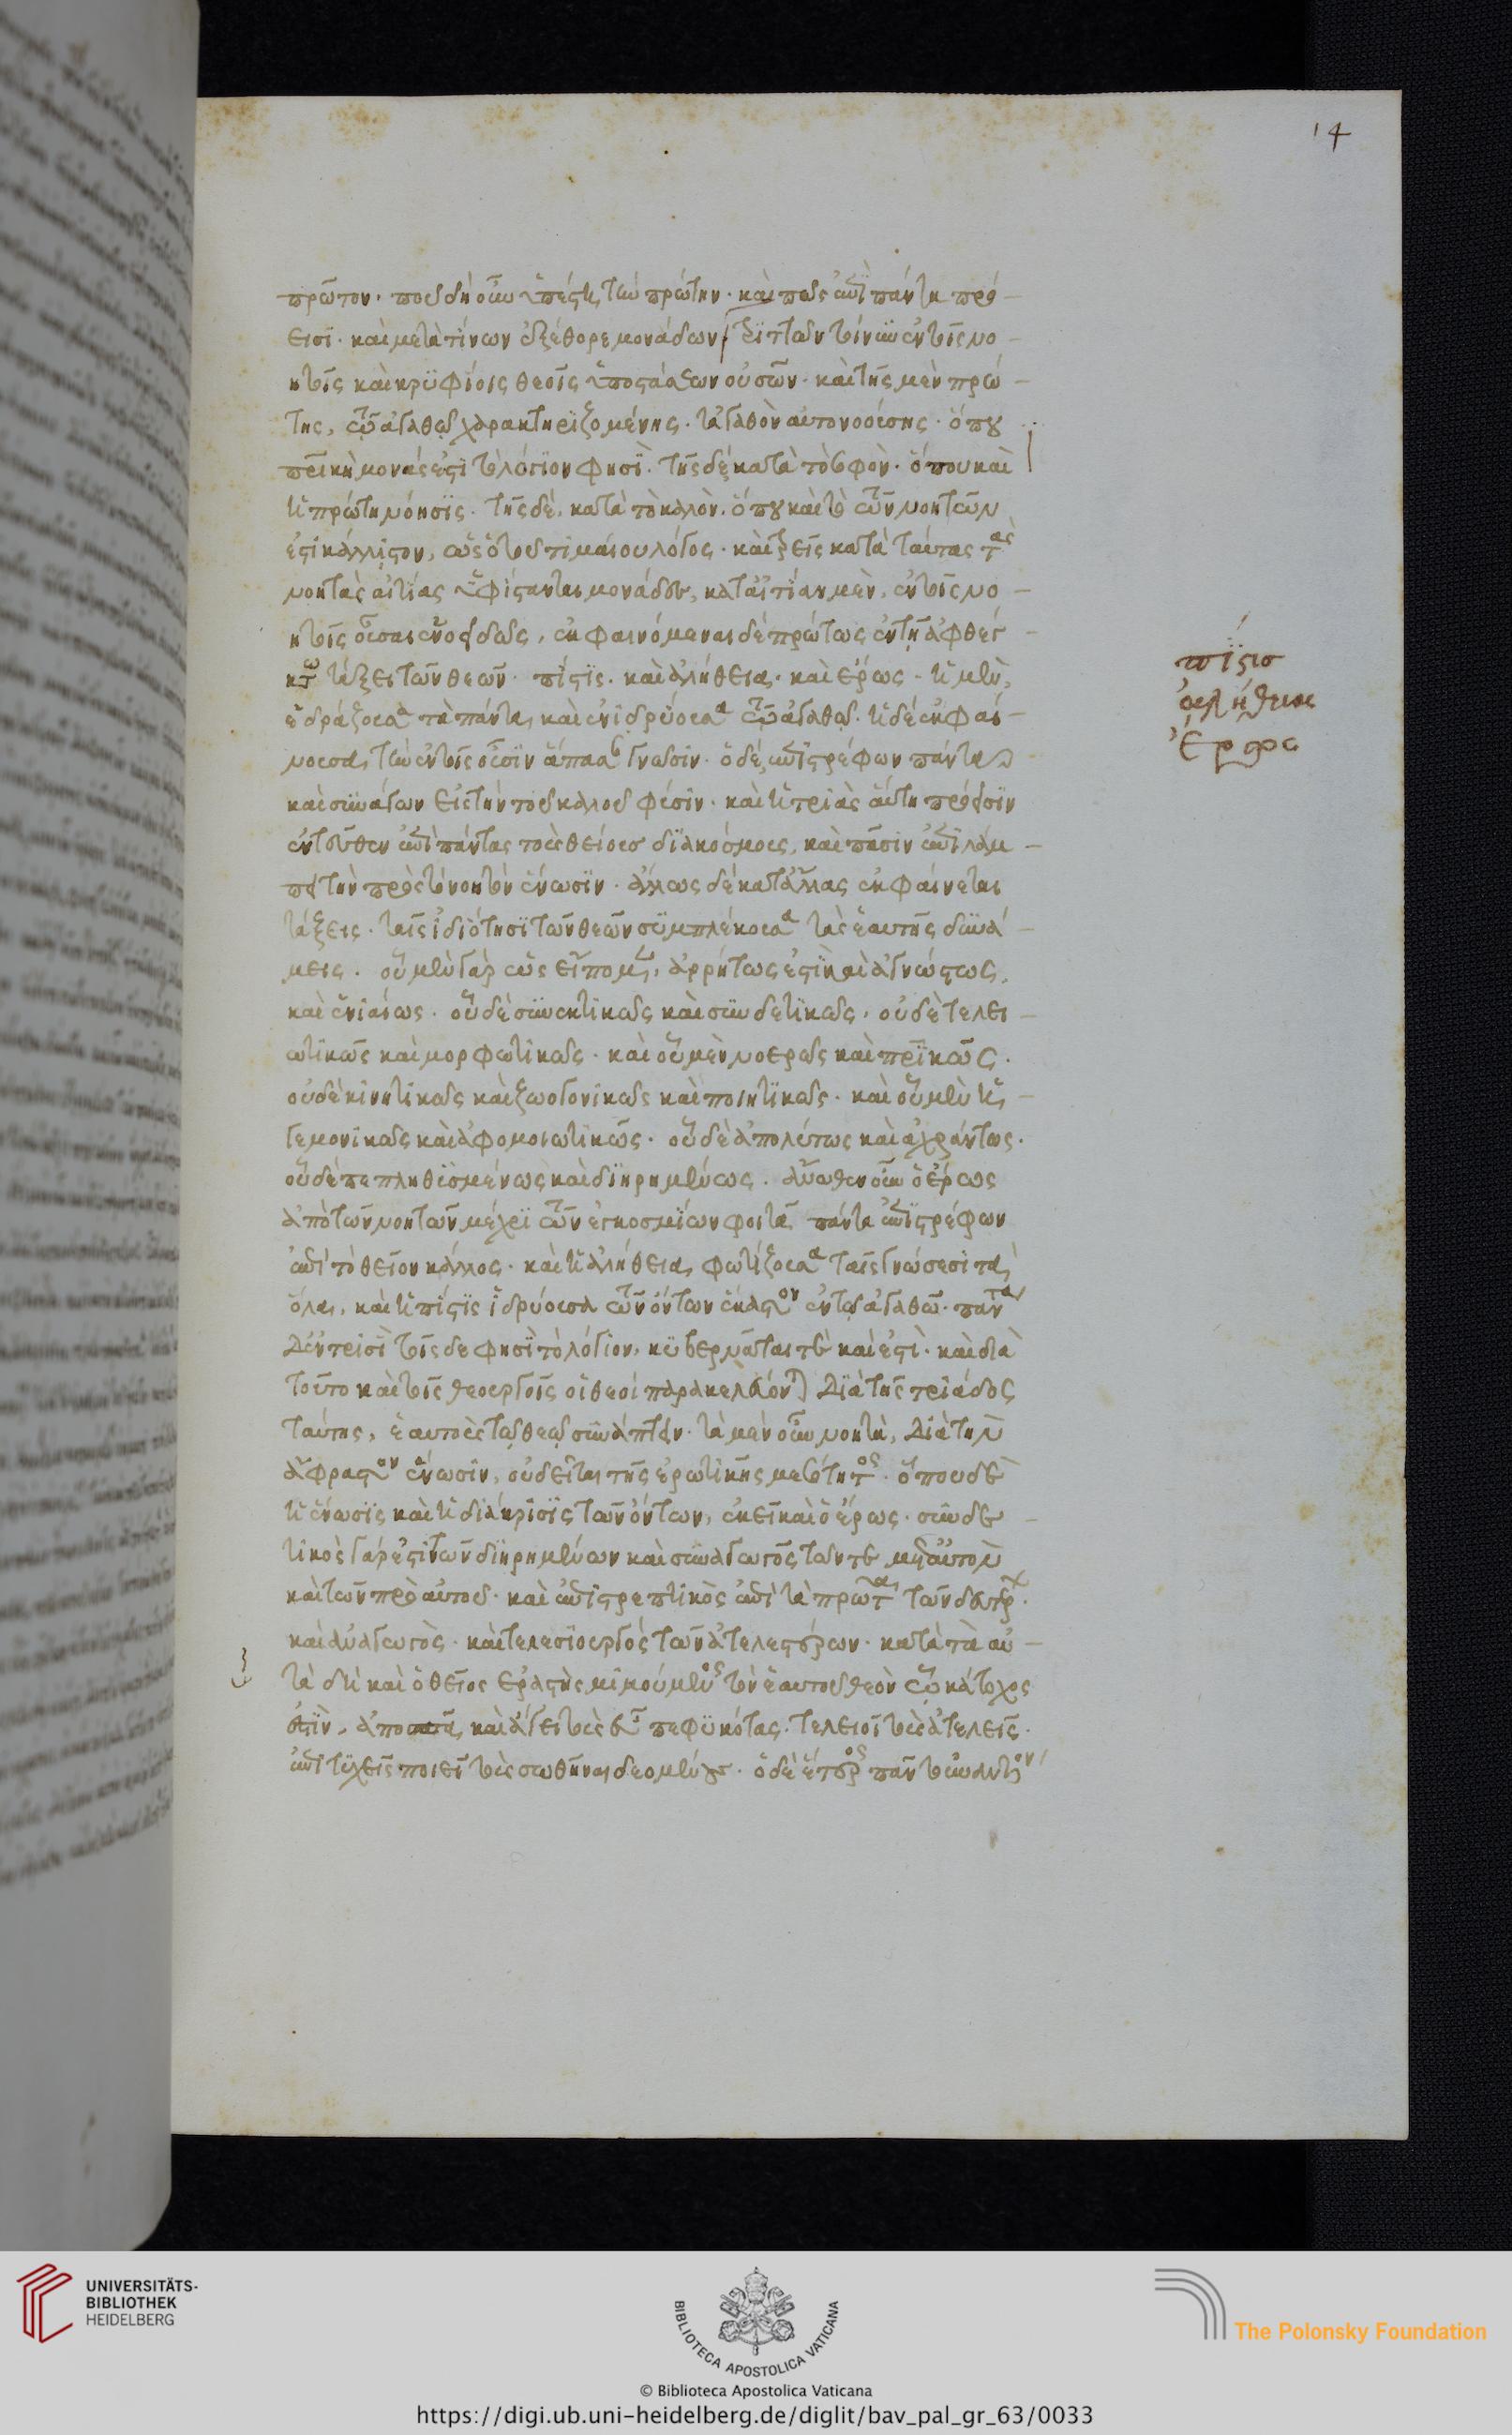 πρῶτον· ποῦ δὴ οὖν ὑπέστη τὴν πρώτην· καὶ πῶς ἐπὶ πάντα πρό-
εισι· καὶ μετὰ τίνων ἐξέθορε μονάδων τριῶν τοίνυν ἐν τοῖς νο-
ητοῖς καὶ κρυφίοις θεοῖς ὑποστάσεων οὐσῶν· καὶ τῆς μὲν πρώ-
της, τῷ ἀγαθῷ χαρακτηριζομένης. τἀγαθὸν αὐτονοούσης· ὅπου
πρικὴ μονάς ἐστι τὸ λόγιον φησί. τῆς δὲ κατὰ τὸ σοφὸν. ὅπου καὶ
ἡ πρώτη νόησις. τῆς δὲ, κατὰ τὸ καλὸν. ὅπου καὶ τὸ τῶν νοητῶν
ἐστὶ κάλλιστον, ὡς ὁ τοῦ τιμαίου λόγος· καὶ τρεῖς κατὰ ταύτας τὰς
νοητὰς αἰτίας ὑφίστανται μονάδες, κατ' αἰτίαν μὲν, ἐν τοῖς νο-
ητοῖς οὖσαι ἑνοειδῶς, ἐκφαινόμεναι δὲ πρώτως ἐν τῇ ἀφθέγ-
κτω τάξει τῶν θεῶν· πίστις. καὶ ἀλήθεια. καὶ ἔρως. ἡ μὲν,
ἑδράζουσα τὰ πάντα, καὶ ἐνιδρύουσα τῷ ἀγαθῷ. ἡ δὲ ἐκφαί-
νουσα, τὴν ἐν τοῖς οὖσιν ἅπασι γνῶσιν. ὁ δὲ, ἐπιστρέφων πάντα
καὶ συνάγων εἰς τὴν τοῦ καλοῦ φύσιν. καὶ ἡ τριὰς αὕτη πρόεισιν
ἐντεῦθεν ἐπὶ πάντας τοὺς θείους διακόσμους, καὶ πᾶσιν ἐπιλάμ-
πει τὴν πρὸς τὸ νοητὸν ἕνωσιν. ἄλλως δὲ κατ' ἄλλας ἐκφαίνεται
τάξεις. ταῖς ἰδιότησι τῶν θεῶν συμπλέκουσα τὰς ἑαυτῆς δυνά-
μεις. οὗ μὲν γὰρ ὡς εἴπομεν, ἀρρήτως ἐστὶ καὶ ἀγνώστως,
καὶ ἑνιαίως. οὗ δὲ συνεκτικῶς καὶ συνδετικῶς. οὗ δὲ τελει-
ωτικῶς καὶ μορφωτικῶς. καὶ οὗ μὲν νοερῶς καὶ πρικῶς.
οὗ δὲ κινητικῶς καὶ ζωογονικῶς καὶ ποιητικῶς. καὶ οὗ μὲν ἡ-
γεμονικῶς καὶ ἀφομοιωτικῶς. οὗ δὲ ἀπολύτως καὶ ἀχράντως.
οὗ δὲ πεπληθυσμένως καὶ διῃρημένως. ἄνωθεν οὖν ὁ ἔρως
ἀπὸ τῶν νοητῶν μέχρι τῶν ἐγκοσμίων φοιτᾶ, πάντα ἐπιστρέφων
ἐπὶ τὸ θεῖον κάλλος· καὶ ἡ ἀλήθεια, φωτίζουσα ταῖς γνώσεσι τὰ
ὅλα, καὶ ἡ πίστις ἱδρύουσα τῶν ὄντων ἕκαστον ἐν τῷ ἀγαθῷ. πάντα
δ' ἐν τρισὶ τοῖσδε φησὶ τὸ λόγιον, κυβερνᾶται τε καὶ ἐστὶ. καὶ διὰ
τοῦτο καὶ τοῖς θεουργοῖς οἱ θεοὶ παρακελεύονται διὰ τῆς τριάδος
ταύτης, ἑαυτοὺς τῷ θεῷ συνάπτειν. τὰ μὲν οὖν νοητὰ, διὰ τὴν
ἄφραστον ἕνωσιν, οὐ δεῖται τῆς ἐρωτικῆς μεσότητος. ὅπου δὲ
ἡ ἕνωσις καὶ ἡ διάκρισις τῶν ὄντων, ἐκεῖ καὶ ὁ ἔρως. συνδε-
τικὸς γάρ ἐστι τῶν διῃρημένων καὶ συναγωγὸς τῶν τε μετ' αὐτὸν
καὶ τῶν πρὸ αὐτοῦ. καὶ ἐπιστρεπτικὸς ἐπὶ τὰ πρῶτα τῶν δευτέρων.
καὶ ἀναγωγὸς. καὶ τελεσιουργὸς τῶν ἀτελεστέρων. κατὰ τὰ αὐ-
τὰ δὴ καὶ ὁ θεῖος ἐραστὴς μιμούμενος τὸν ἑαυτοῦ θεὸν ᾧ κάτοχος
ἐστὶν, ἀποσπᾶ, καὶ ἀνάγει τοὺς εὖ πεφυκότας. τελειοῖ τοὺς ἀτελεῖς.
ἐπιτυχεῖς ποιεῖ τοὺς σωθῆναι δεομένους. ὁ δὲ ἕτερος πᾶν τοὐναντίον
πίστισ
ἀλήθεια
ἔρως
14
UNIVERSITÄTS-
BIBLIOTHEK
HEIDELBERG
BIBLIOTECA APOSTOLICA VATICANA
The Polonsky Foundation
© Biblioteca Apostolica Vaticana
https://digi.ub.uni-heidelberg.de/diglit/bav_pal_gr_63/0033